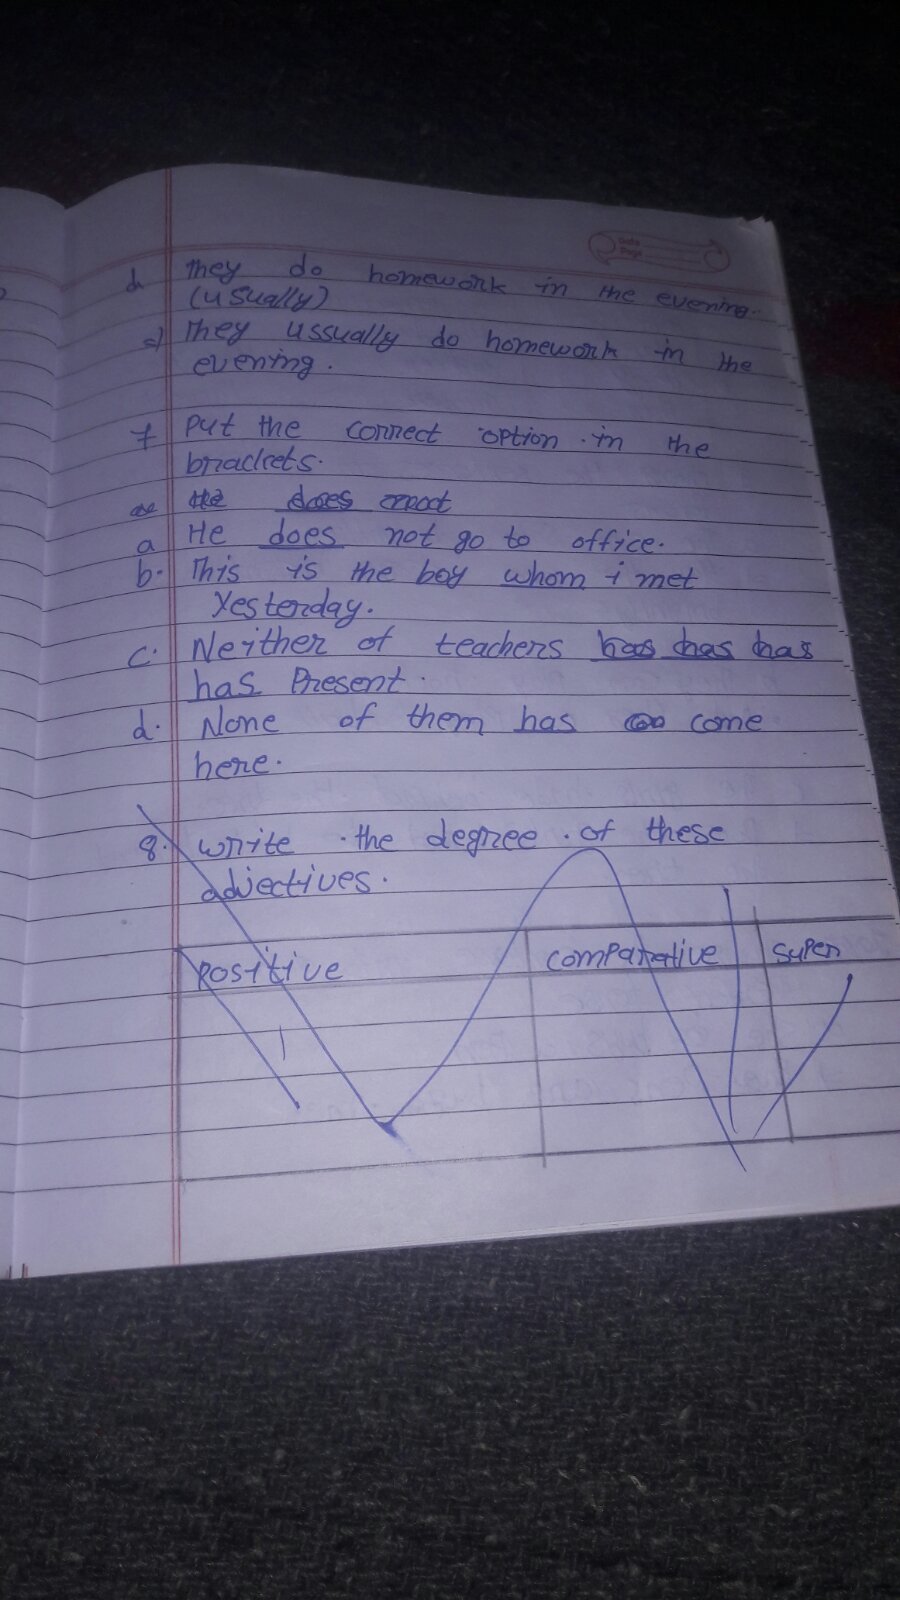 Date
Page
d. They do homework in the evening.
(usually)
⇒) They ussually do homework in the
evening.
7 Put the correct option in the
brackets.
a. He does not go to office.
b. This is the boy whom i met
Yesterday.
c. Neither of teachers has has has
has Present.
d. None of them has come
here.
8. write the degree of these
adjectives.
Positive comparative super